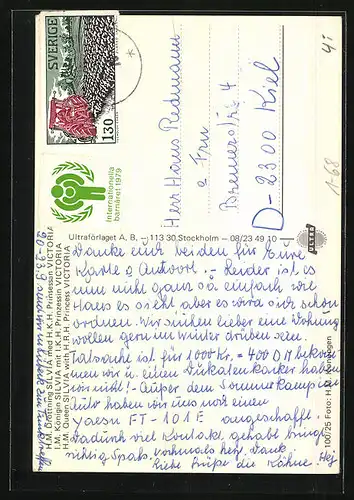 SVERIGE
130
Internationella
barnåret 1979
Herr Hans Redmann
o Fru
Bremerstr. 4
D-2300 Kiel
4,-
1-68
Ultraförlaget A. B. – 113 30 Stockholm – 08/23 49 10
ULTRA
H.M. Drottning SILVIA med H.K.H. Prinsessan VICTORIA
I.M. Königin SILVIA mit I.K.H. Prinzessin VICTORIA
H.M. Queen SILVIA with H.R.H. Princess VICTORIA
100/25 Foto: H.M. Konungen
20-23.9
Danke euch beiden für Eure
Karte o Antwort. - Leider ist es
nun nicht ganz so einfach wie
Hans es sieht aber es wird sich schon
ordnen. Wir suchen lieber eine Wohnung
wollen gern im Winter drüben sein.
Tatsache ist für 1000 Kr. - 400 DM bekom
men wir u. einen Dukatenkacker haben
wir nicht! - Außer dem Sommerkampin
Auto haben wir uns noch einen
Yaesu FT-101E angeschafft.
Dadurch viel Kontakt gehabt bringt
richtig Spaß. nochmals herzl. Dank.
Liebe Grüße die Kühne. Hej